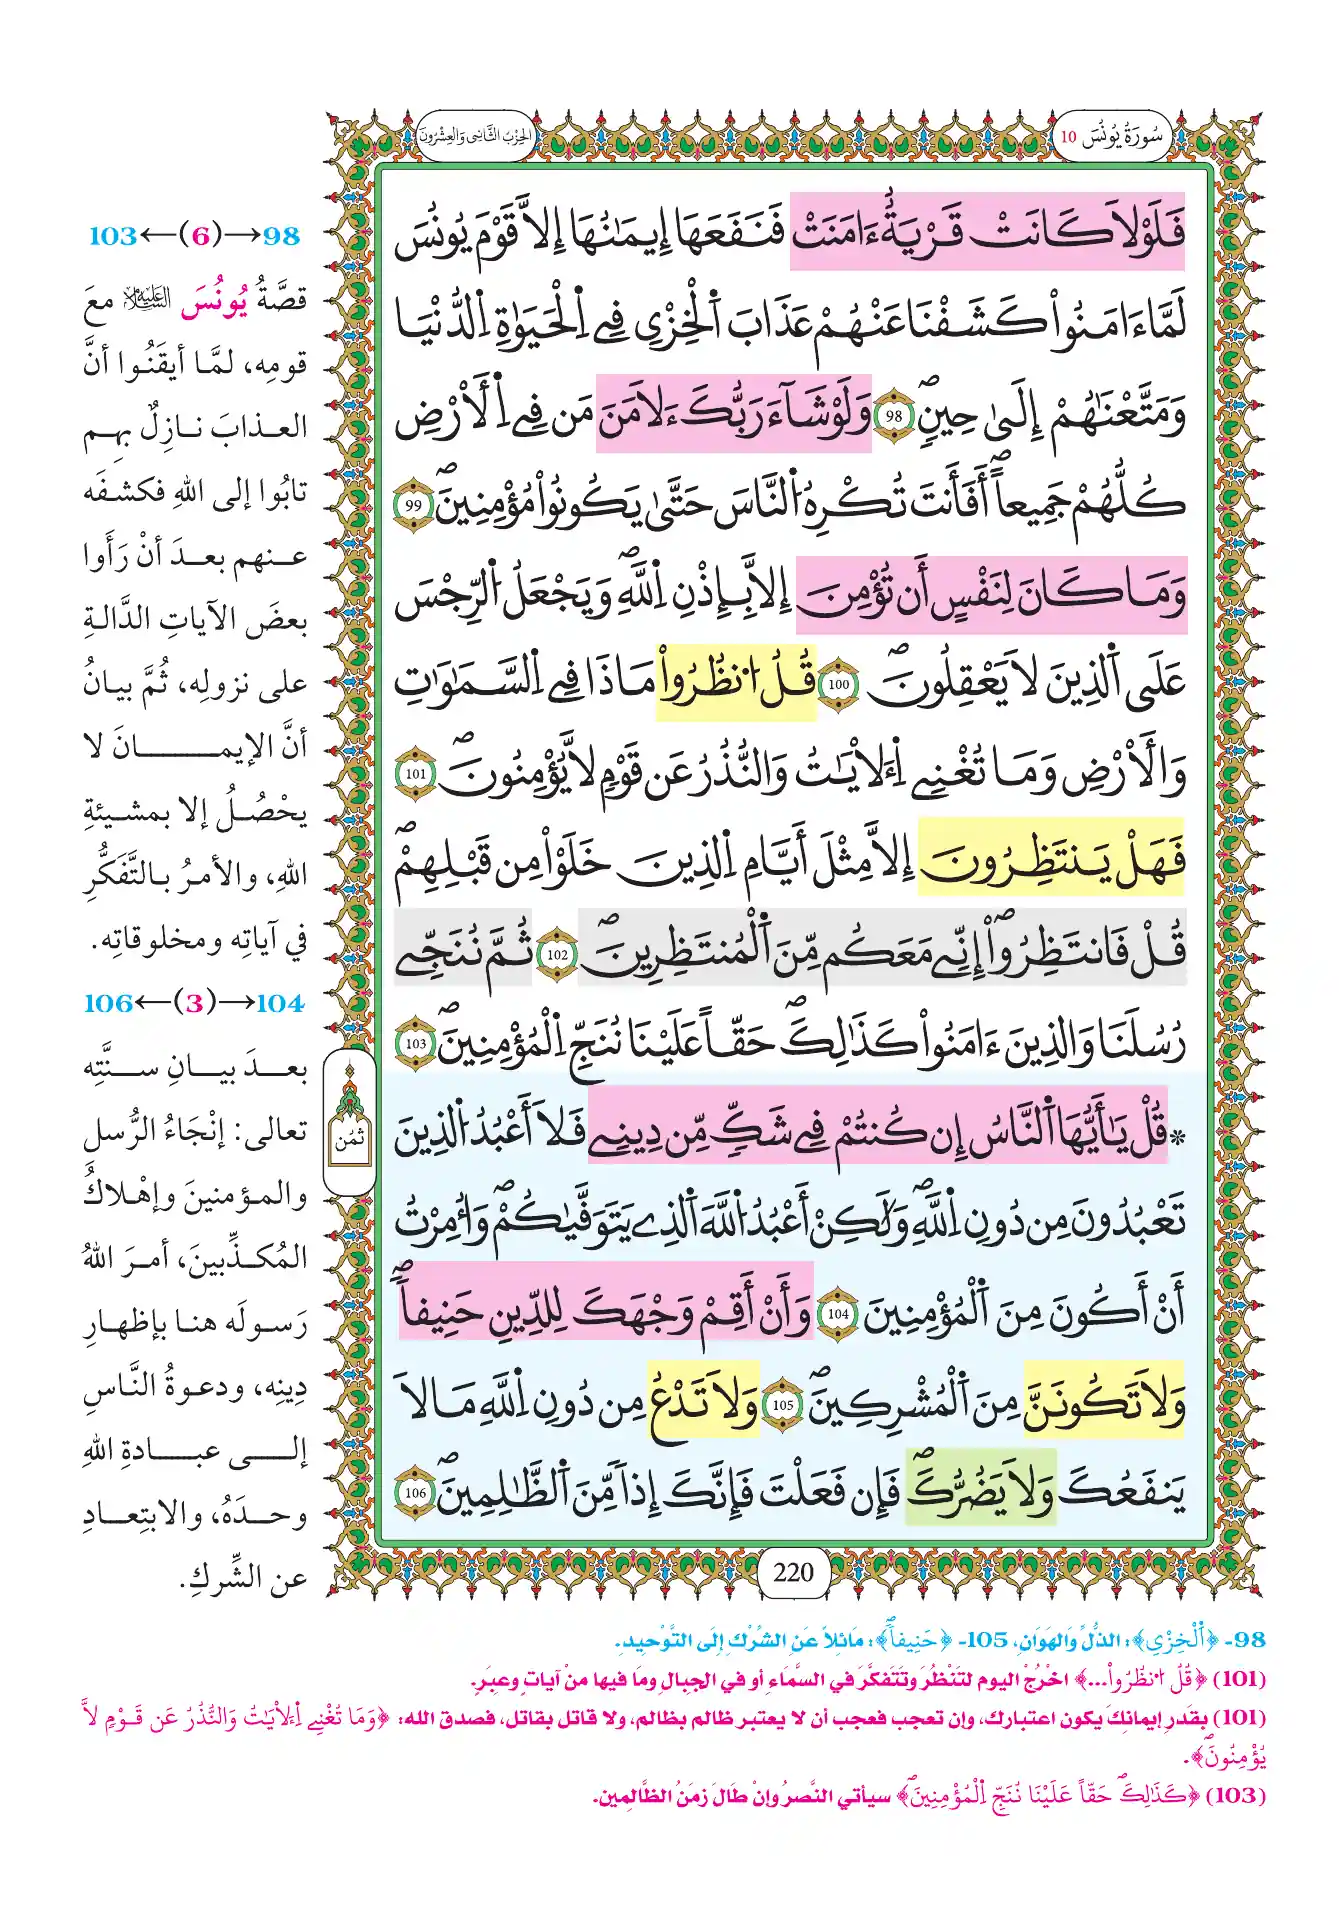 سُورَةُ يُونُسَ 10
الحِزْبُ الثَّانِي وَالعِشْرُونَ
فَلَوْلَا كَانَتْ قَرْيَةٌ ءَامَنَتْ فَنَفَعَهَا إِيمَٰنُهَا إِلَّا قَوْمَ يُونُسَ
لَمَّا ءَامَنُواْ كَشَفْنَا عَنْهُمْ عَذَابَ اَ۬لْخِزْيِ فِے اِ۬لْحَيَوٰةِ اِ۬لدُّنْيَا
وَمَتَّعْنَٰهُمْ إِلَىٰ حِينٖۖ 98 وَلَوْ شَآءَ رَبُّكَ ءَلَامَنَ مَن فِے اِ۬لَارْضِ
كُلُّهُمْ جَمِيعاًۖ أَفَأَنتَ تُكْرِهُ اُ۬لنَّاسَ حَتَّىٰ يَكُونُواْ مُؤْمِنِينَۖ 99
وَمَا كَانَ لِنَفْسٍ أَن تُؤْمِنَ إِلَّا بِإِذْنِ اِ۬للَّهِۖ وَيَجْعَلُ اُ۬لرِّجْسَ
عَلَى اَ۬لذِينَ لَا يَعْقِلُونَۖ 100 قُلُ اُ۟نظُرُواْ مَاذَا فِے اِ۬لسَّمَٰوَٰتِ
وَالَارْضِ وَمَا تُغْنِے اِ۬لَايَٰتُ وَالنُّذُرُ عَن قَوْمٖ لَّا يُؤْمِنُونَۖ 101
فَهَلْ يَنتَظِرُونَ إِلَّا مِثْلَ أَيَّامِ اِ۬لذِينَ خَلَوْاْ مِن قَبْلِهِمْۖ
قُلْ فَانتَظِرُوٓاْۖ إِنِّے مَعَكُم مِّنَ اَ۬لْمُنتَظِرِينَۖ 102 ثُمَّ نُنَجِّے
رُسُلَنَا وَالذِينَ ءَامَنُواْ كَذَٰلِكَۖ حَقّاً عَلَيْنَا نُنَجِّ اِ۬لْمُؤْمِنِينَۖ 103
* قُلْ يَٰأَيُّهَا اَ۬لنَّاسُ إِن كُنتُمْ فِے شَكّٖ مِّن دِينِے فَلَا أَعْبُدُ اُ۬لذِينَ
تَعْبُدُونَ مِن دُونِ اِ۬للَّهِۖ وَلَٰكِنْ أَعْبُدُ اُ۬للَّهَ اَ۬لذِے يَتَوَفَّيٰكُمْۖ وَأُمِرْتُ
أَنْ أَكُونَ مِنَ اَ۬لْمُؤْمِنِينَ 104 وَأَنْ أَقِمْ وَجْهَكَ لِلدِّينِ حَنِيفاًۖ
وَلَا تَكُونَنَّ مِنَ اَ۬لْمُشْرِكِينَۖ 105 وَلَا تَدْعُ مِن دُونِ اِ۬للَّهِ مَا لَا
يَنفَعُكَ وَلَا يَضُرُّكَۖ فَإِن فَعَلْتَ فَإِنَّكَ إِذاً مِّنَ اَ۬لظَّٰلِمِينَۖ 106
ثمن
220
98→(6)←103
قصَّةُ يُونُسَ عليه السلام معَ
قومِه، لمَّا أيقَنُوا أنَّ
العذابَ نازِلٌ بهِم
تابُوا إلى اللهِ فكشفَه
عنهم بعدَ أنْ رَأَوا
بعضَ الآياتِ الدَّالةِ
على نزولِه، ثُمَّ بيانُ
أنَّ الإيمانَ لا
يحْصُلُ إلا بمشيئةِ
اللهِ، والأمرُ بالتَّفَكُّرِ
في آياتِه ومخلوقاتِه.
104→(3)←106
بعدَ بيانِ سنَّتِه
تعالى: إنْجَاءُ الرُّسل
والمؤمنينَ وإهْلاكُ
المُكذِّبينَ، أمرَ اللهُ
رَسولَه هنا بإظهارِ
دِينِه، ودعوةُ النَّاسِ
إلى عبادةِ اللهِ
وحدَهُ، والابتِعادِ
عن الشِّركِ.
98- ﴿اَ۬لْخِزْيِ﴾: الذُّلِّ وَالهَوَانِ، 105- ﴿حَنِيفاًۖ﴾: مَائِلاً عَنِ الشِّرْكِ إِلَى التَّوْحِيدِ.
(101) ﴿قُلُ اُ۟نظُرُواْ...﴾ اخْرُجْ اليوم لتَنْظُرَ وتَتَفكَّرَ في السَّمَاءِ أو في الجِبالِ ومَا فيها منْ آياتٍ وعِبَرٍ.
(101) بقَدَرِ إيمانِكَ يكون اعتبارك، وإن تعجب فعجب أن لا يعتبر ظالم بظالم، ولا قاتل بقاتل، فصدق الله: ﴿وَمَا تُغْنِے اِ۬لَايَٰتُ وَالنُّذُرُ عَن قَوْمٖ لَّا
يُؤْمِنُونَۖ﴾.
(103) ﴿كَذَٰلِكَۖ حَقّاً عَلَيْنَا نُنَجِّ اِ۬لْمُؤْمِنِينَۖ﴾ سيأتي النَّصرُ وإنْ طَالَ زمَنُ الظَّالِمِين.